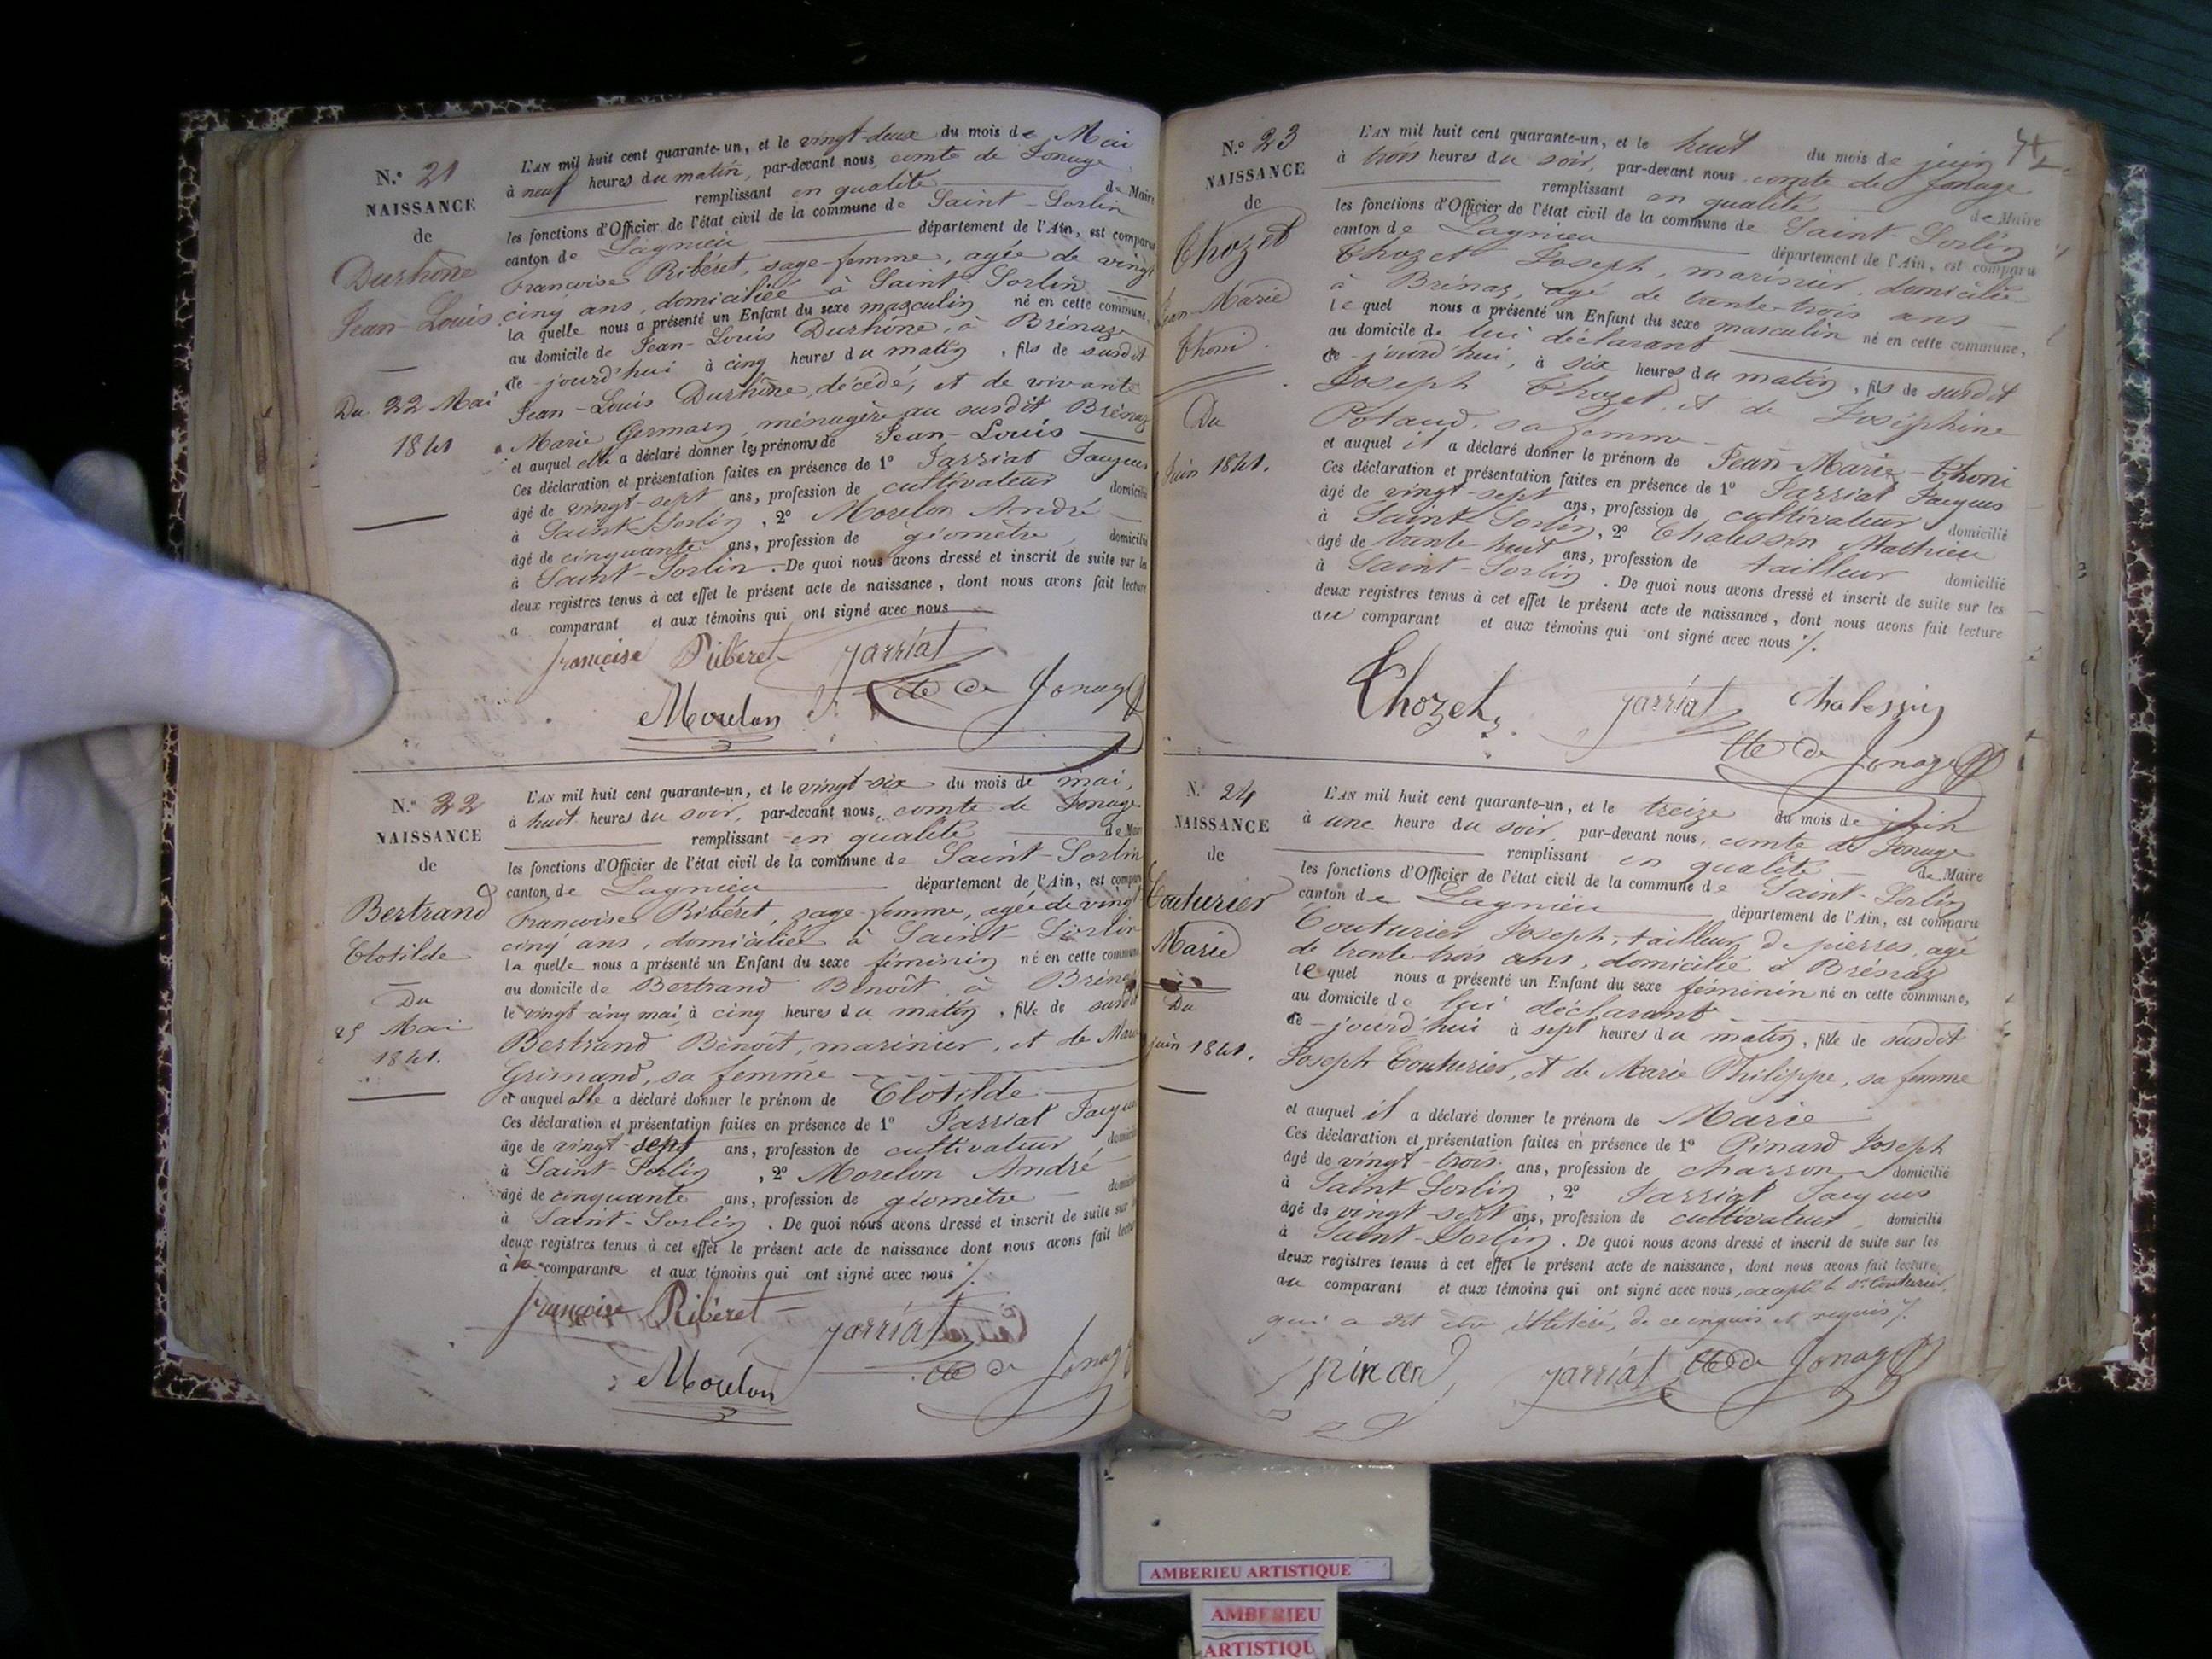 N.° 21
NAISSANCE
de
Durhône
Jean-Louis
Du 22 Mai
1841
L'AN mil huit cent quarante-un, et le vingt-deux du mois de Mai
à neuf heures du matin, par-devant nous, comte de Jonage
remplissant en qualité de Maire
les fonctions d'Officier de l'état civil de la commune de Saint-Sorlin
canton de Lagnieu département de l'Ain, est comparu
Françoise Ribéret, sage-femme, agée de vingt
cinq ans, domiciliée à Saint-Sorlin
la quelle nous a présenté un Enfant du sexe masculin né en cette commune,
au domicile de Jean-Louis Durhône, à Brénaz
ce-jourd'hui à cinq heures du matin, fils de susdit
Jean-Louis Durhône, décédé, et de vivante
Marie Germain, ménagère au susdit Brénaz
et auquel elle a déclaré donner les prénoms de Jean-Louis
Ces déclaration et présentation faites en présence de 1° Jarriat Jacques
âgé de vingt-sept ans, profession de cultivateur domicilié
à Saint-Sorlin, 2° Morelon André
âgé de cinquante ans, profession de géomètre, domicilié
à Saint-Sorlin. De quoi nous avons dressé et inscrit de suite sur les
deux registres tenus à cet effet le présent acte de naissance, dont nous avons fait lecture
a comparant et aux témoins qui ont signé avec nous
françoise Ribéret Jarriat
Morelon Cte de Jonage
N.° 22
NAISSANCE
de
Bertrand
Clotilde
Du
25 Mai
1841.
L'AN mil huit cent quarante-un, et le vingt-six du mois de mai,
à huit heures du soir, par-devant nous, comte de Jonage
remplissant en qualité de Maire
les fonctions d'Officier de l'état civil de la commune de Saint-Sorlin
canton de Lagnieu département de l'Ain, est comparu
Françoise Ribéret, sage-femme, agée de vingt
cinq ans, domiciliée à Saint-Sorlin
la quelle nous a présenté un Enfant du sexe féminin né en cette commune
au domicile de Bertrand Benoît à Brénaz
le vingt-cinq mai, à cinq heures du matin, fille de susdit
Bertrand Benoît, marinier, et de Marie
Grimand, sa femme
et auquel elle a déclaré donner le prénom de Clotilde
Ces déclaration et présentation faites en présence de 1° Jarriat Jacques
âgé de vingt-sept ans, profession de cultivateur, domicilié
à Saint-Sorlin, 2° Morelon André
âgé de cinquante ans, profession de géomètre domicilié
à Saint-Sorlin. De quoi nous avons dressé et inscrit de suite sur les
deux registres tenus à cet effet le présent acte de naissance dont nous avons fait lecture
à la comparante et aux témoins qui ont signé avec nous ./.
françoise Ribéret Jarriat
Morelon Cte de Jonage
N.° 23
NAISSANCE
de
Chozet
Jean-Marie
Thoni.
Du
Juin 1841.
L'AN mil huit cent quarante-un, et le huit du mois de juin
à trois heures du soir, par-devant nous comte de Jonage
remplissant en qualité de Maire
les fonctions d'Officier de l'état civil de la commune de Saint-Sorlin
canton de Lagnieu département de l'Ain, est comparu
Chozet Joseph, marinier, domicilié
à Brénaz, agé de trente-trois ans
le quel nous a présenté un Enfant du sexe masculin né en cette commune,
au domicile de lui déclarant
ce-jourd'hui, à six heures du matin, fils de susdit
Joseph Chozet, et de Joséphine
Potaud, sa femme
et auquel il a déclaré donner le prénom de Jean-Marie-Thoni
Ces déclaration et présentation faites en présence de 1° Jarriat Jacques
âgé de vingt-sept ans, profession de cultivateur domicilié
à Saint-Sorlin, 2° Chalessin Mathieu
âgé de trente-huit ans, profession de tailleur domicilié
à Saint-Sorlin. De quoi nous avons dressé et inscrit de suite sur les
deux registres tenus à cet effet le présent acte de naissance, dont nous avons fait lecture
au comparant et aux témoins qui ont signé avec nous ./.
Chozet Jarriat Chalessin
Cte de Jonage
N.° 24
NAISSANCE
de
Couturier
Marie
Du
juin 1841.
L'AN mil huit cent quarante-un, et le treize du mois de juin
à une heure du soir, par-devant nous, comte de Jonage
remplissant en qualité de Maire
les fonctions d'Officier de l'état civil de la commune de Saint-Sorlin
canton de Lagnieu département de l'Ain, est comparu
Couturier Joseph, tailleur de pierres, agé
de trente-trois ans, domicilié à Brénaz
le quel nous a présenté un Enfant du sexe féminin né en cette commune,
au domicile de lui déclarant
ce-jourd'hui à sept heures du matin, fille de susdit
Joseph Couturier, et de Marie Philippe, sa femme
et auquel il a déclaré donner le prénom de Marie
Ces déclaration et présentation faites en présence de 1° Pinard Joseph
âgé de vingt-trois ans, profession de charron domicilié
à Saint-Sorlin, 2° Jarriat Jacques
âgé de vingt-sept ans, profession de cultivateur, domicilié
à Saint-Sorlin. De quoi nous avons dressé et inscrit de suite sur les
deux registres tenus à cet effet le présent acte de naissance, dont nous avons fait lecture
au comparant et aux témoins qui ont signé avec nous, excepté le sr. Couturier,
qui a dit être illitéré, de ce enquis et requis ./.
pinard Jarriat Cte de Jonage
AMBERIEU ARTISTIQUE
AMBERIEU
ARTISTIQU